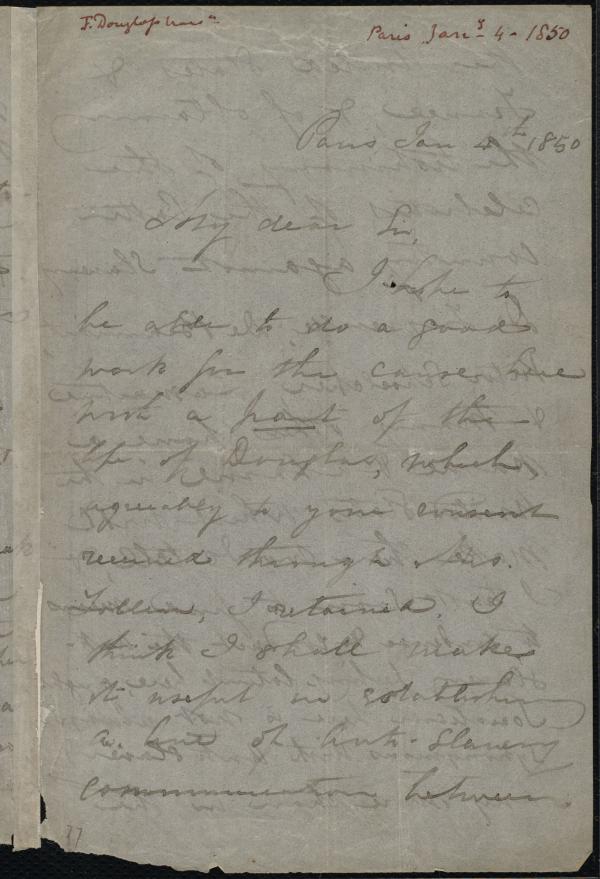 F. Douglass
Paris Jany 4 - 1850
Paris Jan 4th 1850
My dear Sir,
I hope to
be able to do a good
work for the cause here
with a part of the
life of Douglas, which,
agreeably to your consent
received through Mrs.
Follen, I retained. I
think I shall make
it useful in establishing
a line of Anti-Slavery
communication between